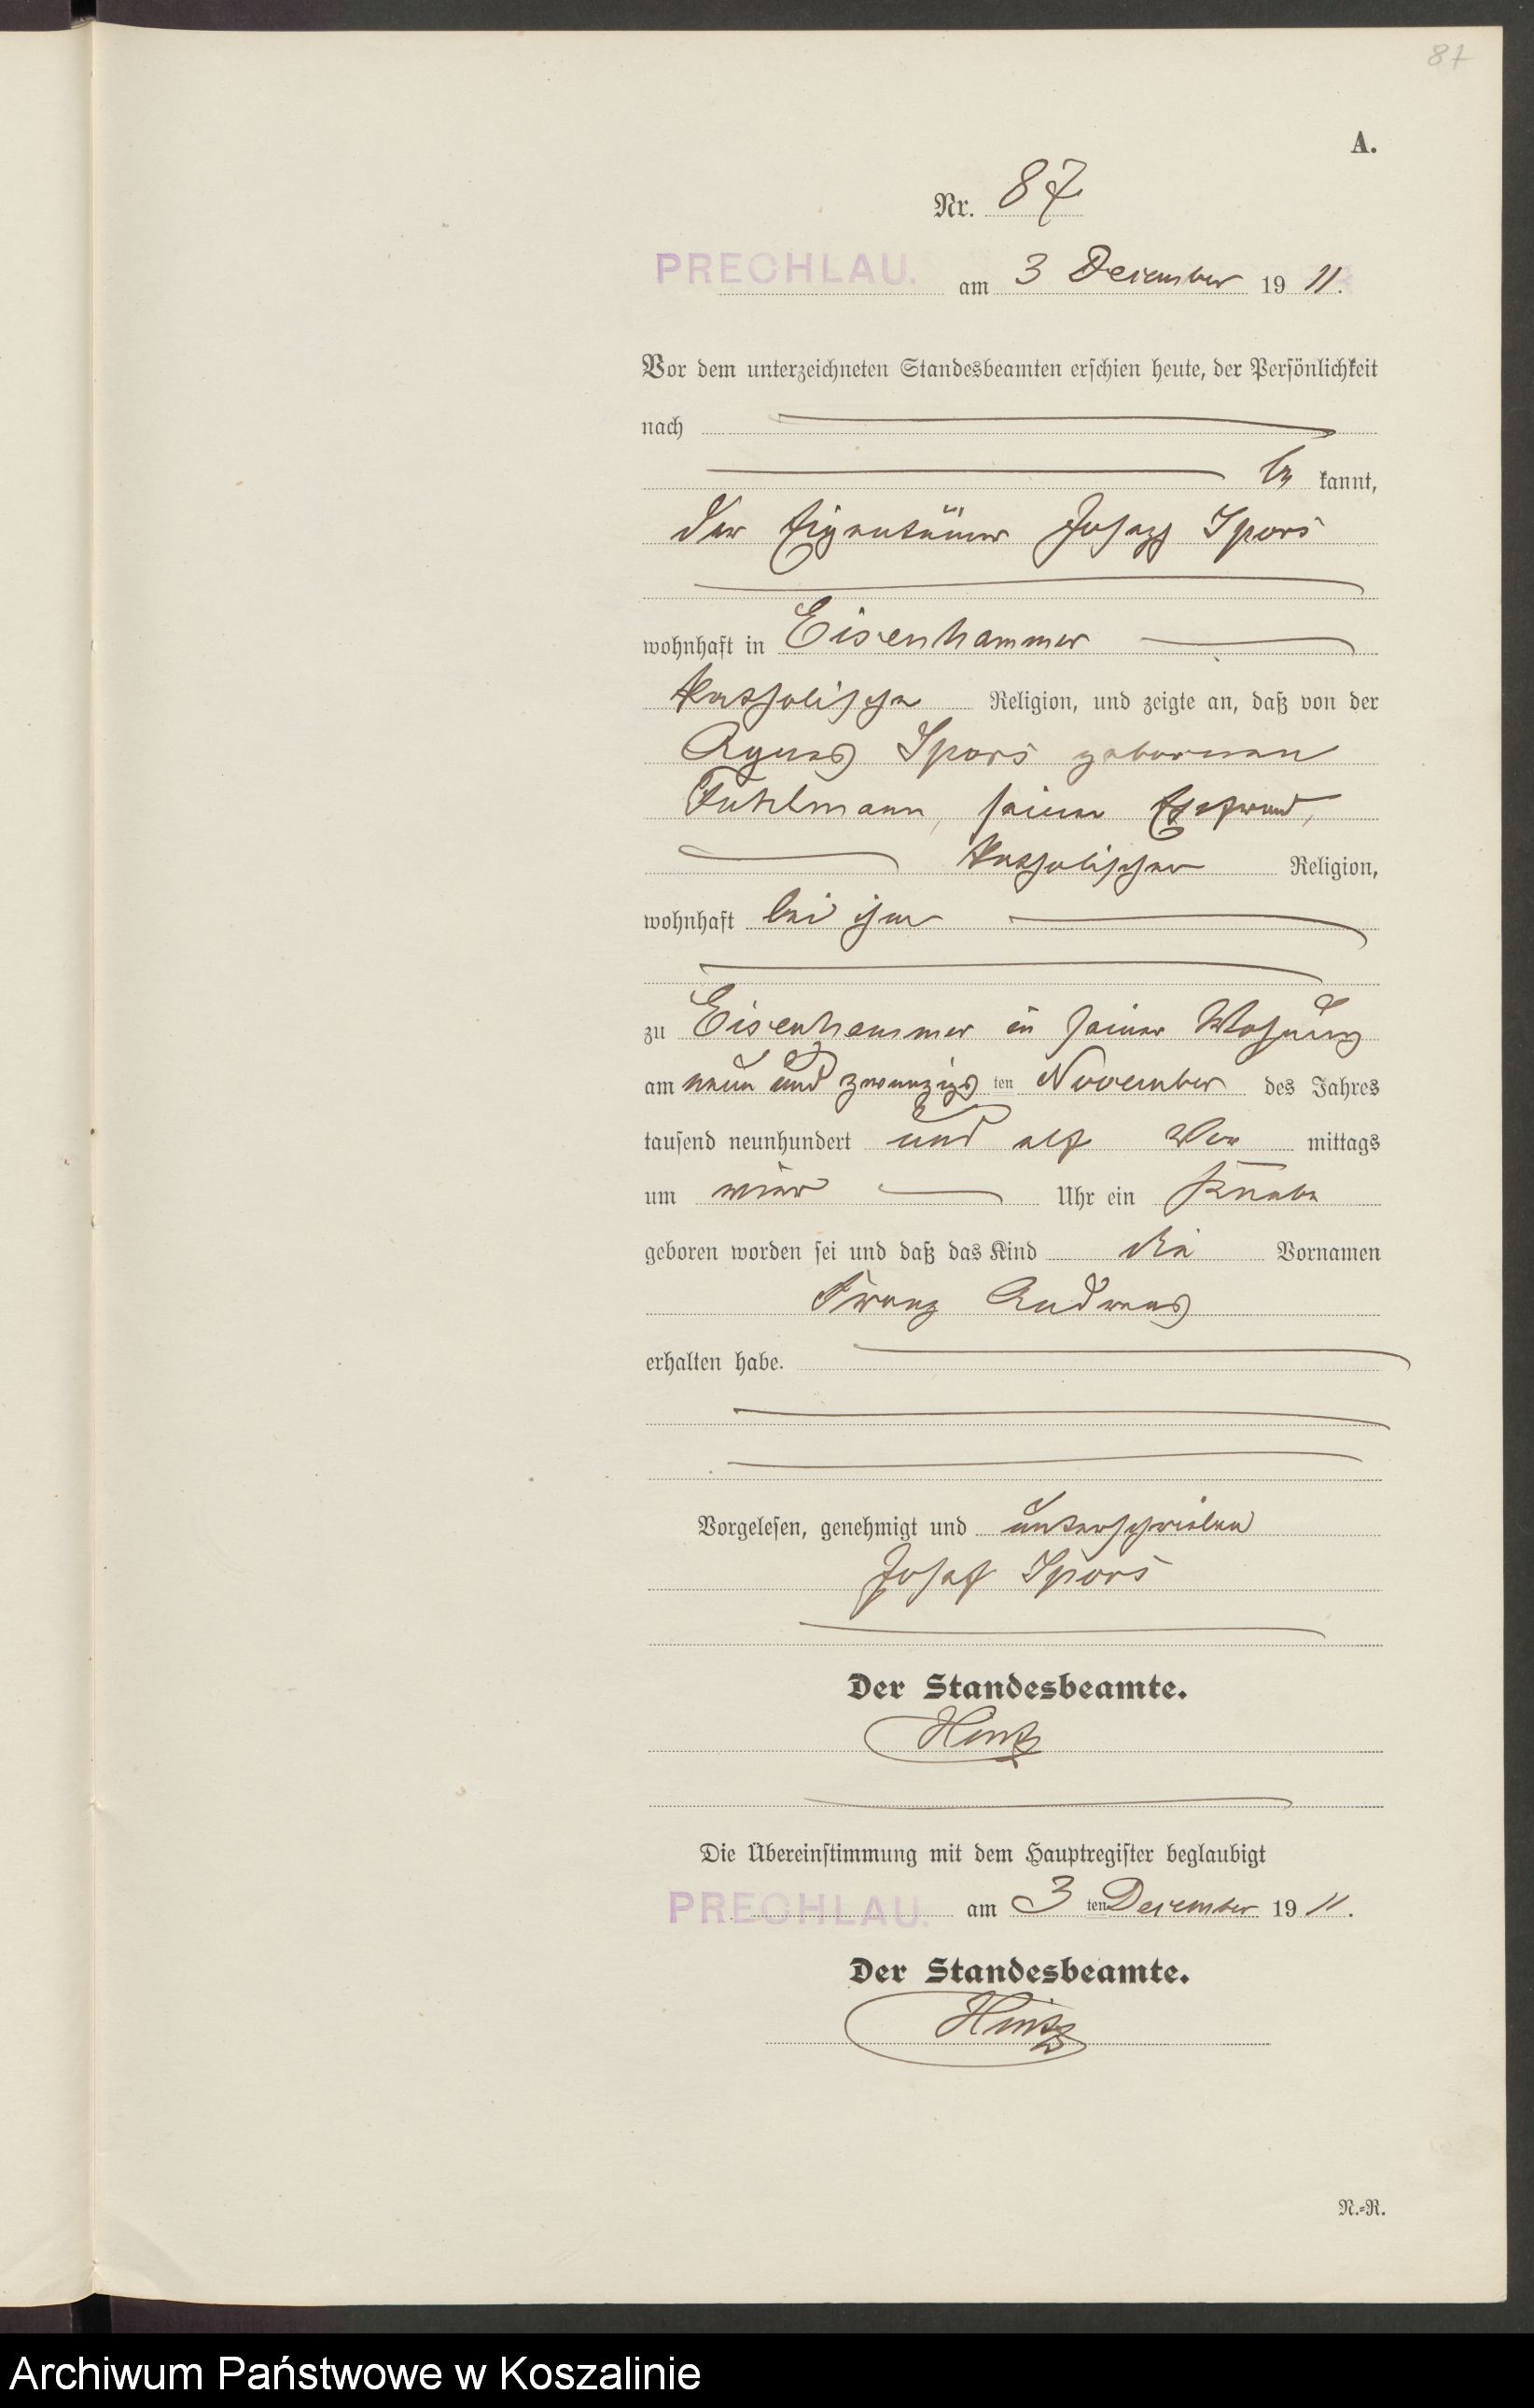 87
A.
Nr. 87
PRECHLAU. am 3 Dezember 19 11.
Vor dem unterzeichneten Standesbeamten erschien heute, der Persönlichkeit
nach
be kannt,
der Eigentümer Josef Spors
wohnhaft in Eisenhammer
katholischer Religion, und zeigte an, daß von der
Agnes Spors geborenen
Fuhlmann, seiner Ehefrau,
katholischer Religion,
wohnhaft bei ihm
zu Eisenhammer in seiner Wohnung
am neun und zwanzigs ten November des Jahres
tausend neunhundert und elf Vor mittags
um vier Uhr ein Knabe
geboren worden sei und daß das Kind die Vornamen
Franz Andreas
erhalten habe.
Vorgelesen, genehmigt und unterschrieben
Josef Spors
Der Standesbeamte.
Hintz
Die Übereinstimmung mit dem Hauptregister beglaubigt
PRECHLAU. am 3 ten Dezember 19 11.
Der Standesbeamte.
Hintz
N.-R.
Archiwum Państwowe w Koszalinie